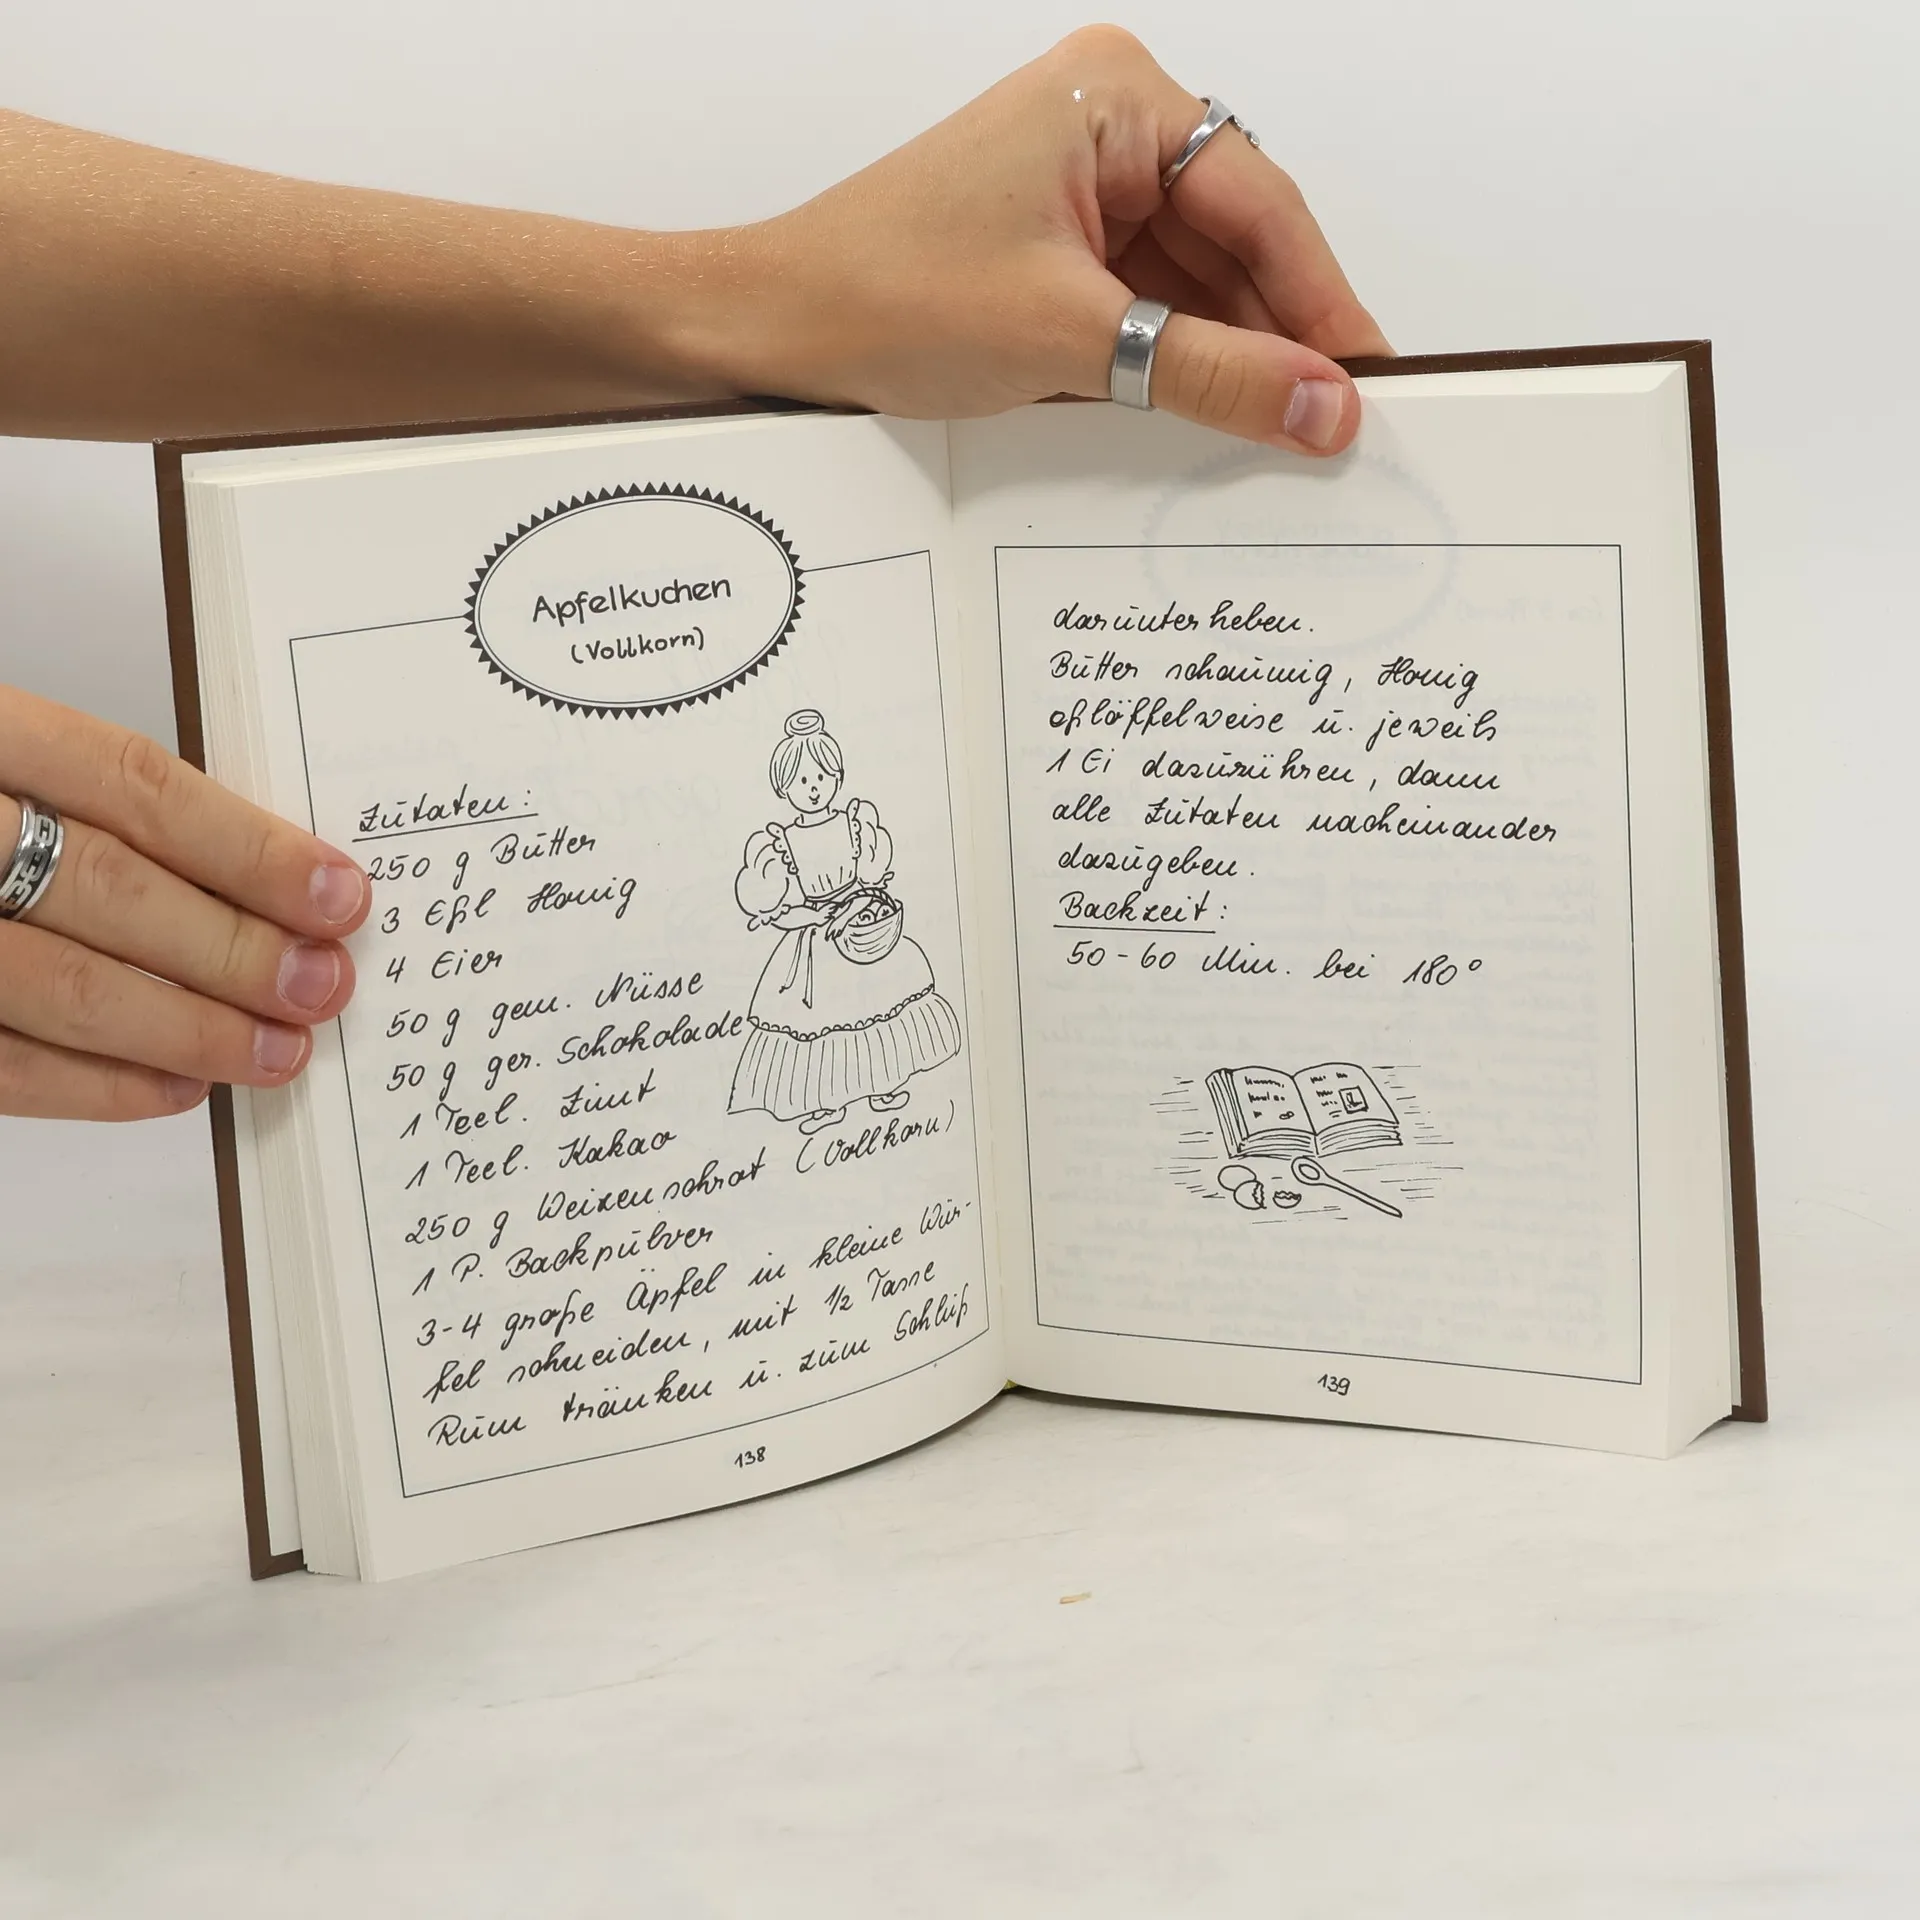 Apfelkuchen
(Vollkorn)
Zutaten:
250 g Butter
3 Eßl Honig
4 Eier
50 g gem. Nüsse
50 g ger. Schokolade
1 Teel. Zimt
1 Teel. Kakao
250 g Weizenschrot (Vollkorn)
1 P. Backpulver
3-4 große Äpfel in kleine Wür-
fel schneiden, mit 1/2 Tasse
Rum tränken u. zum Schluß
138
darunter heben.
Butter schaumig, Honig
eßlöffelweise u. jeweils
1 Ei dazurühren, dann
alle Zutaten nacheinander
dazugeben.
Backzeit:
50-60 Min. bei 180°
139